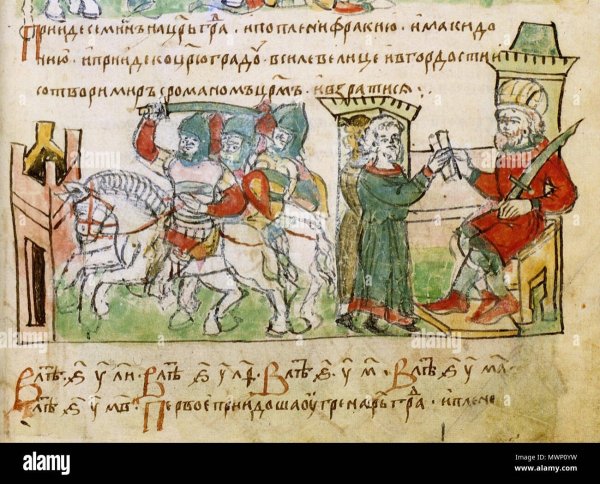 Приде семиѡнъ на црьгра · и поплени фракию · и макидо
нию · и приде ко црюградꙋ · в силе велице и в гордости и
сотвори миръ с романомъ црмъ · и взратися :·
В лѣⷮ · ҂ѕ҃ · у҃ · л҃и · В лѣⷮ · ҂ѕ҃ · у҃ · л҃ѳ · В лѣⷮ · ҂ѕ҃ · у҃ · м҃ · В лѣⷮ · ҂ѕ҃ · у҃ · м҃а ·
В лѣⷮ · ҂ѕ҃ · у҃ · м҃в · Первое придоша оугре на црьгра · и плене
alamy
Image ID: MWP0YW
www.alamy.com